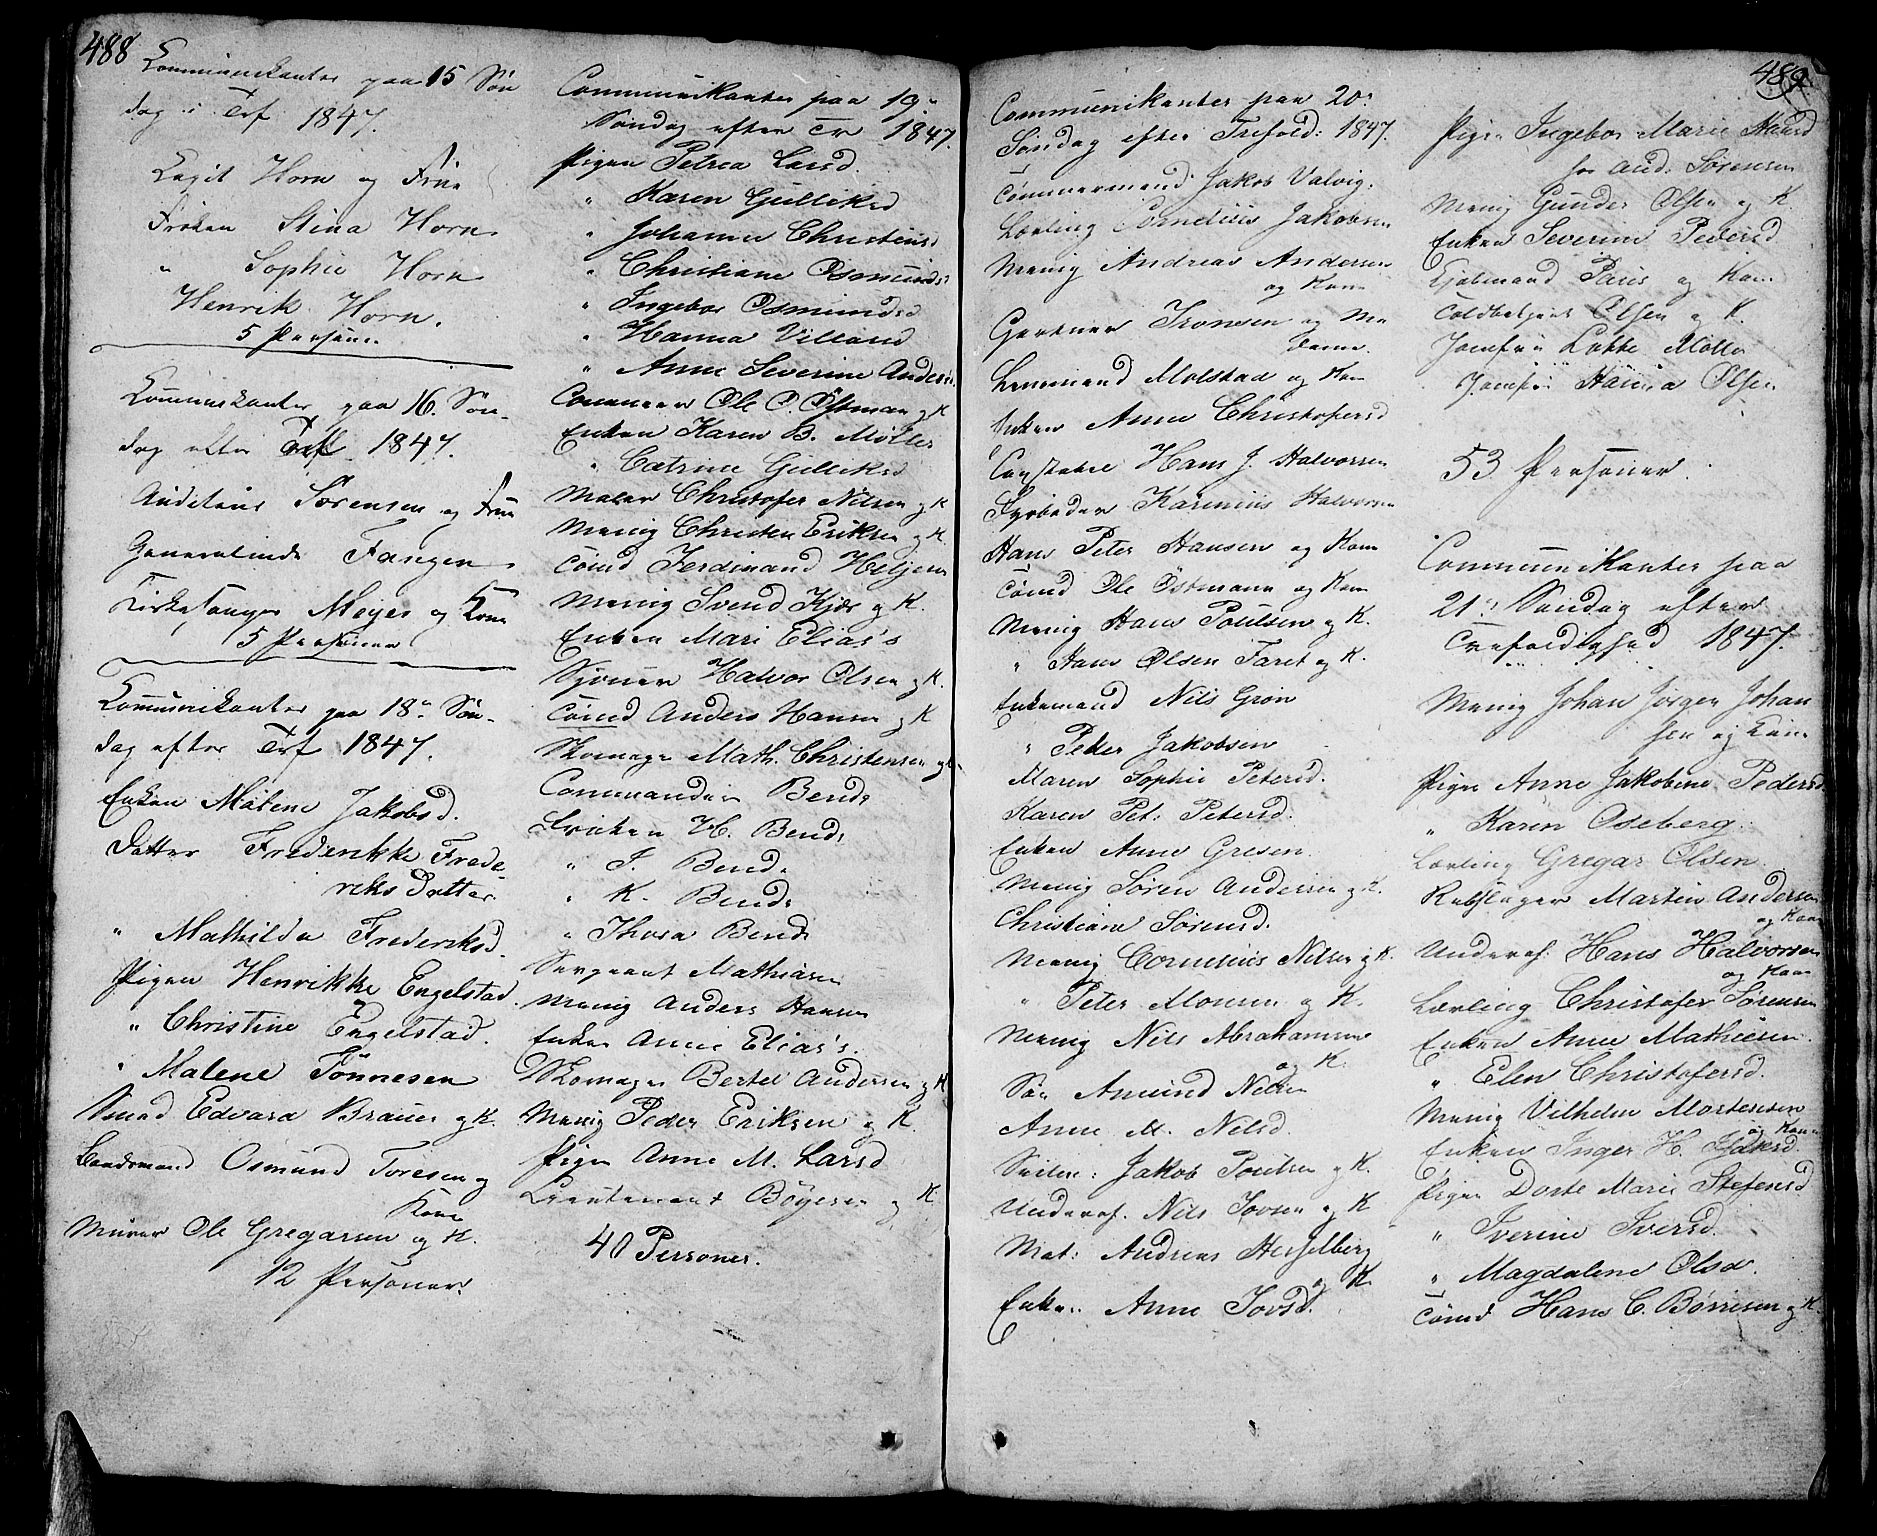 488
Communikanter paa 15 Søn
dag i Trf 1847.
Capit Horn og Frue
Frøken Stina Horn
" Sophie Horn
Henrik Horn.
5 Personer
Communikanter paa 16. Søn-
dag efter Tref 1847.
Auditeur Sørensen og Frue
Generalinde Fangen
Kirkesanger Meyer og Kone
5 Personer
Communikanter paa 18de Søn-
dag efter Trf 1847.
Enken Malene Jakobsd.
Datter Frederikke Frede-
riks Datter
" Mathilda Frederiksd.
Pigen Henrikke Engelstad.
" Christine Engelstad.
" Malene Tønnesen
Smed Edvard Brauer og K.
Baadsmand Osmund Toresen og
Kone
Murer Ole Gregarsen og K.
12 Personer.
Communikanter paa 19de
Søndag efter Tr 1847.
Pigen Petrea Larsd.
" Karen Gulliksd
" Johanne Christensd
" Christiane Osmundsd
" Ingebor Osmundsd
" Hanna Villand
" Anne Severine Andersd.
Ole O. Østman og K
Enken Karen B. Møller
" Catrine Gulliksd
Maler Christofer Nilsen og K
Menig Christen Eriksen og K
Tømd Ferdinand
Menig Svend Kjær og K.
Enken Mari Elias's
Halvor Olsen og K.
Tømd Anders Hansen og K
Skomager Math. Christensen og K
Commandør Bends
Frøken H. Bends
" J. Bends
" K. Bends
" Thora Bends
Sergeant Mathiasen
Menig Anders Hansen
Enken Anne Elias's.
Skomager Bertel Andersen og K
Menig Peder Eriksen og K.
Pigen Anne M. Larsd
Lieutenant Bøyesen og K.
40 Personer.
489.
Communikanter paa 20de
Søndag efter Trefold: 1847.
Tømmermand Jakob Valvig.
Lærling Cornelius Jakobsen
Menig Andreas Andersen
og Kone
Gartner Tronsen og Ma
dame.
Molstad og Kone
Enken Anne Christofersd
Constabel Hans J. Halvorsen
Fyrbøder Karenius Halvorsen
Hans Peter Hansen og Kone
Tømd Ole Østmann og Kone
Menig Hans Poulsen og K.
" Hans Olsen Faret og K.
Enkemand Nils Grøn
" Peter Jakobsen
Maren Sophie Petersd.
Karen Pet: Petersd.
Enken Anne Gresen.
Menig Søren Andersen og K.
Christiane Sørensd.
Menig Cornelius Nilsen og K.
" Peter Monsen og K.
Menig Nils Abrahamsen
og K.
Søn Amund Nilsen
Anne M. Nilsd
Seilm: Jakob Poulsen og K.
Underof. Nils Iovsen og K
Mat: Andreas Hesselberg
og K.
Enken Anne Iovsd.
Pigen Ingebor Marie Hansd
hos Aud: Sørensen
Menig Gunder Olsen og K.
Enken Severine Pedersd
Paus og Kone
Toldbetjent Olsen og K.
Jomfru Lykke Møller
Jomfru Hanna Olsen
53 Personer.
Communikanter paa
21de Søndag efter
Trefoldighed 1847.
Menig Johan Jørgen Johan
sen og Kone
Pigen Anne Jakobine Pedersd
" Karen Oseberg.
Lærling Gregar Olsen.
Rebslager Martin Andersen
og Kone
Underof: Hans Halvorsen
og Kone
Lærling Christofer Sørensen
Enken Anne Mathiesen.
" Elen Christofersd.
Menig Vilhelm Mortensen
og Kone
Enken Inger H. Isaksd.
Pigen Dorte Marie Stefensd
" Iverine Iversd.
" Magdalene Olsd.
Tømd Hans C. Børresen og K.